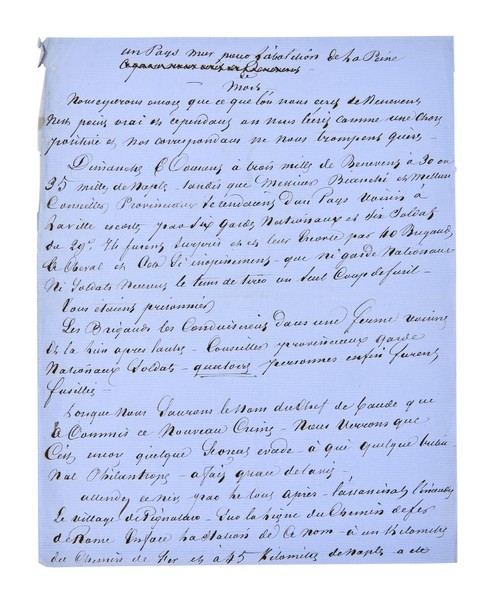 un Pays mur pour l'abolition de la Peine
de
Mort
Nous esperons encore que ce que l'on nous ecrit de Benevent
n'est point vrai et cependant on nous l'ecrit comme une chose
positive et nos correspondants ne nous trompent guère –
Dimanche 6 Courant à trois milles de Benevent à 30 ou
35 milles de Naples – tandis que Messieurs Bianchi et Mellusi
Conseillers Provinciaux se rendaient d'un Pays voisin à
la ville escortés par six gardes Nationaux et six Soldats
du 39e. 76 furent surpris et leur Escorte par 40 Brigands
à Cheval et cela si inopinement – que ni garde Nationaux
Ni Soldats n'eurent le tems de tirer un seul Coup de fusil –
Tous étaient prisonniers
Les Brigands les Conduisirent dans une ferme voisine
et là l'un apres l'autre – Conseillers provinciaux garde
Nationaux Soldats – quatorze personnes enfin furent
fusillés –
Lorsque nous saurons le nom du Chef de bande que
a Commis ce Nouveau Crime – Nous verrons que
C'est encor quelque evadé – à qui quelque tribu-
nal Philantrope – a fait grace de la vie –
attendez ce n'est pas le tout après – l'assassinat l'incendie
Le village de Pignataro – sur la ligne du Chemin de fer
de Rome en face la station de ce nom – à un Kilometre
du Chemin de fer et à 45 Kilometres de Naples – a eté